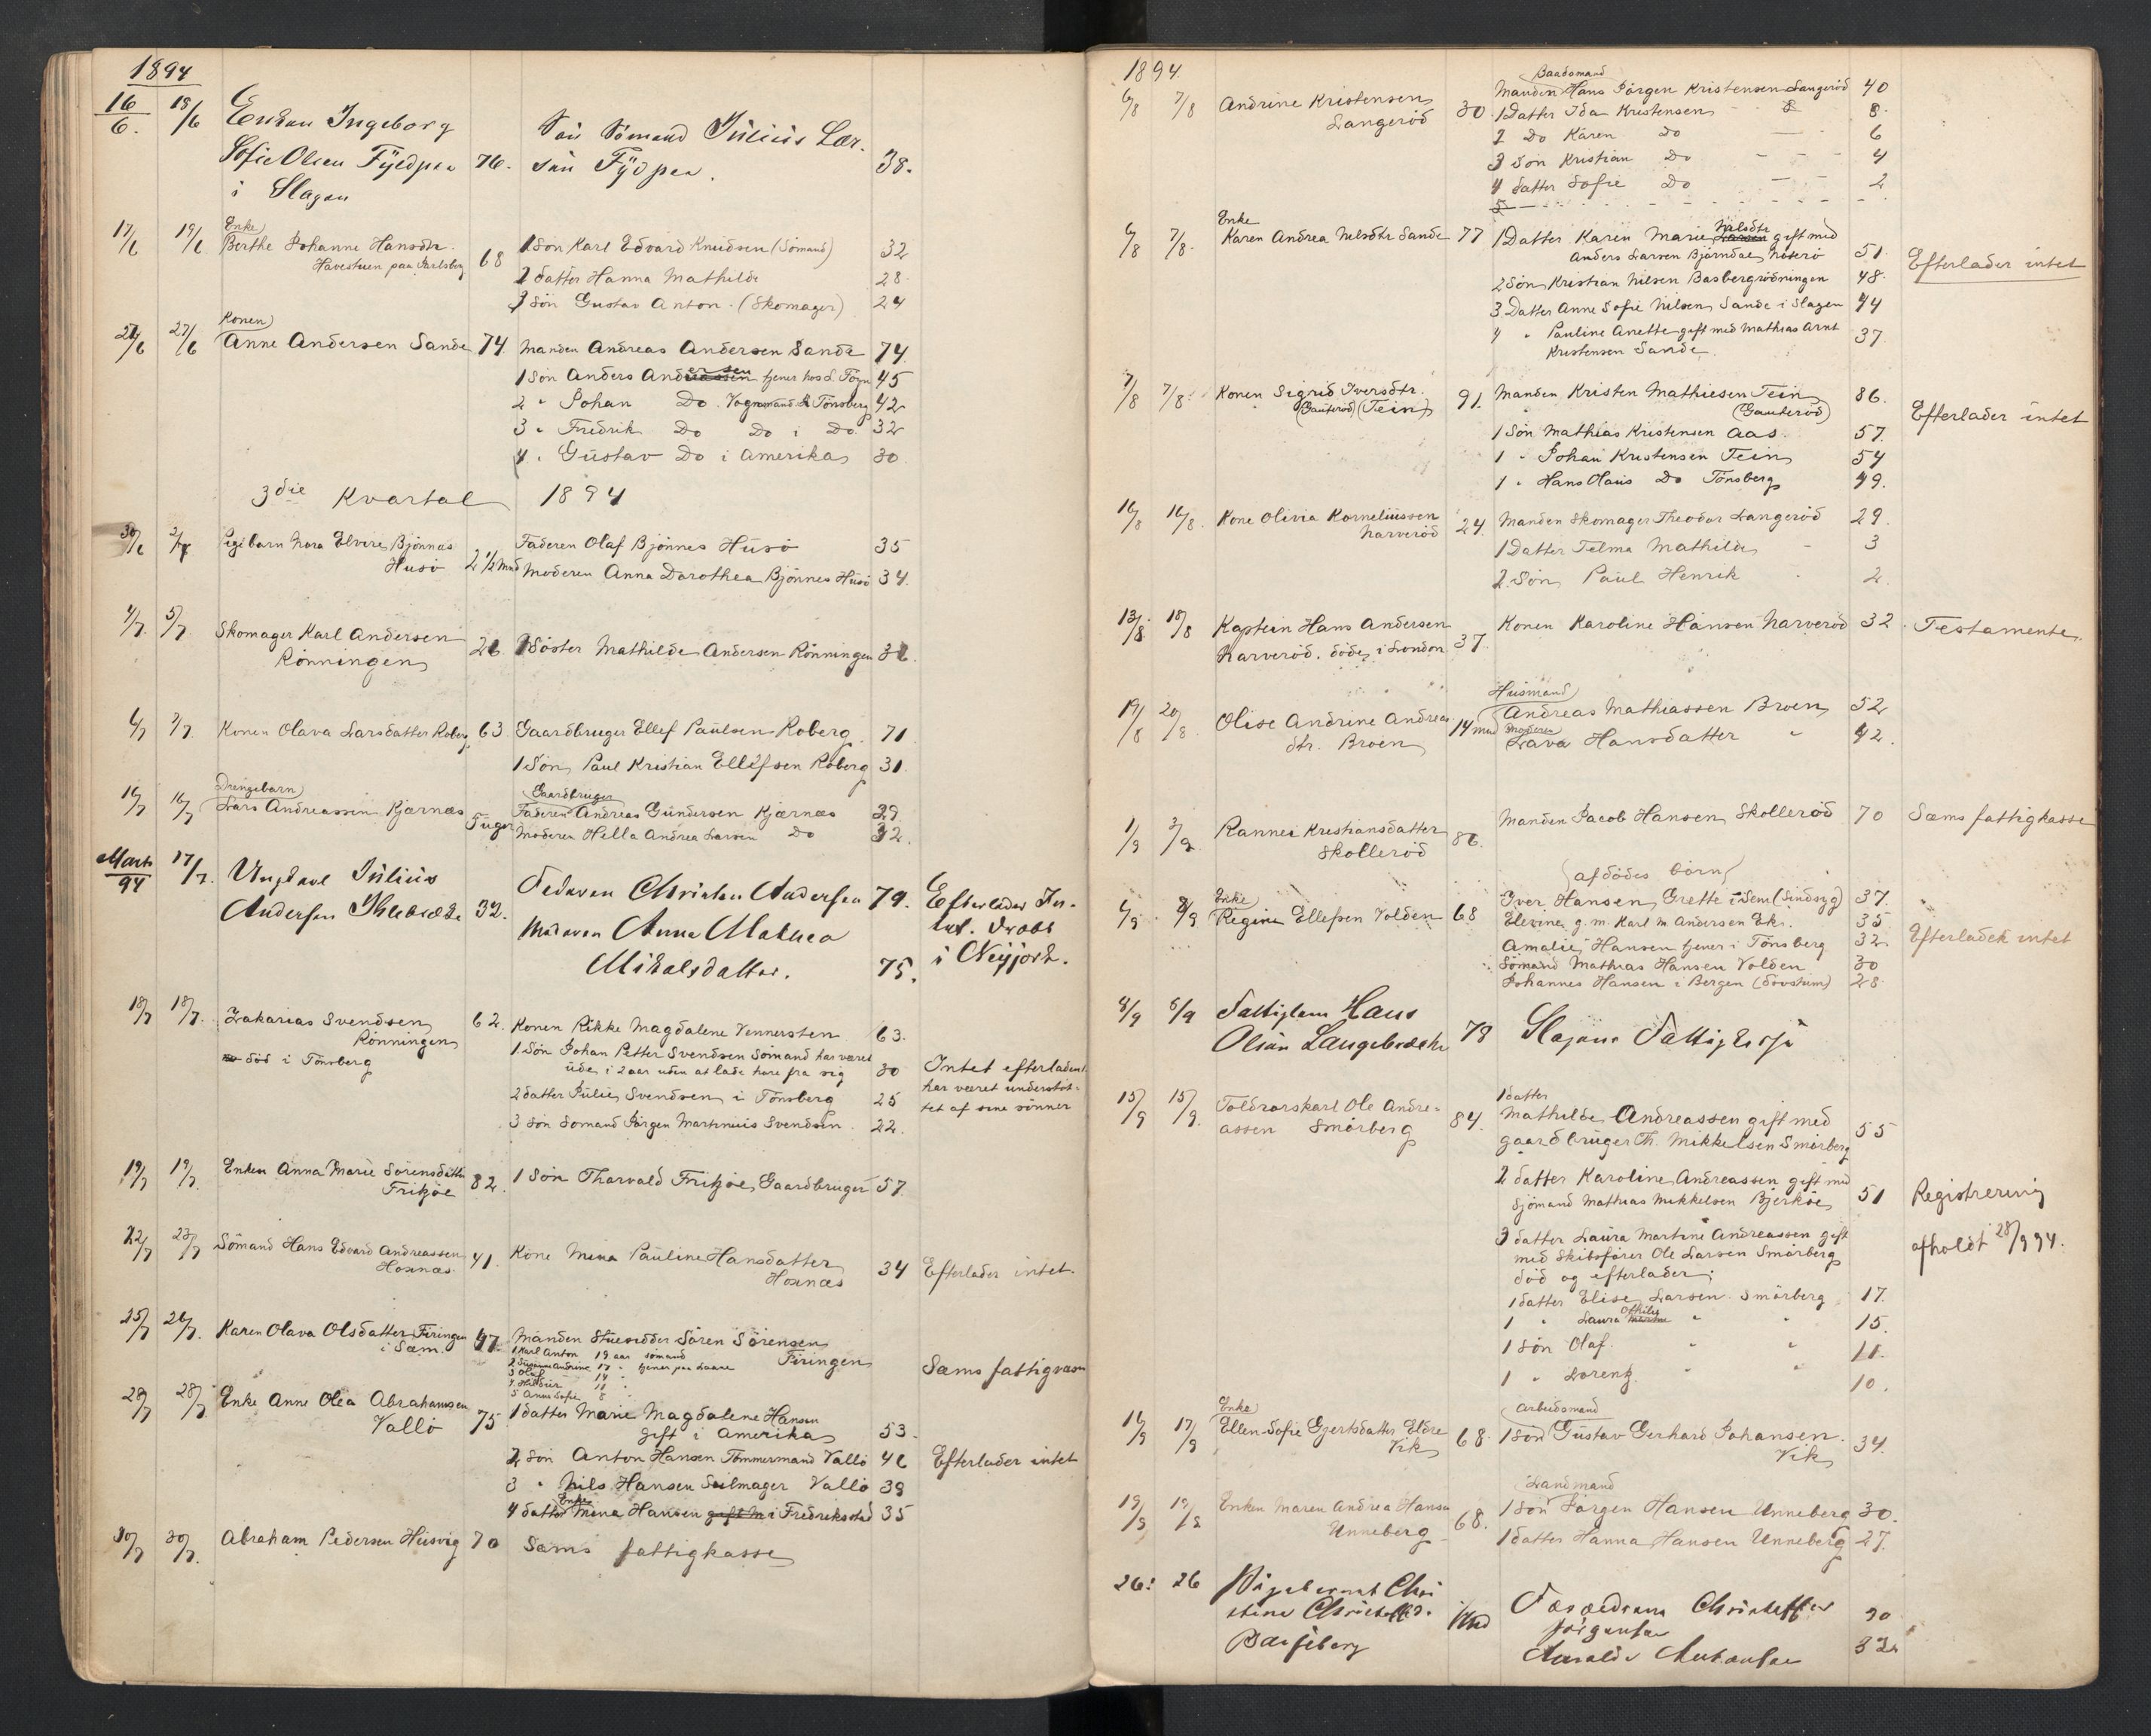 1894
16/6. 18/6 Enken Ingeborg
Sofie Olsen 76. Sön Sömand Julius Lar-
i Slagen 38.
Enke
17/6 19/6 Berthe Johanne Hansdtr. 68 1 Sön Karl Edvard Knudsen (Sömand) 32
Havestuen paa Jarlsberg
2 datter Hanna Mathilde 28
3 Sön Gustav Anton. (Skomager) 24
Konen
27/6 Anne Andersen Sande 74 Manden Andreas Andersen Sande 74
1 Sön Anders Andersen tjener hos S. Foyn 45
2 " Johan Do. Vognmand i Tönsberg 42
3 " Fredrik Do Do i Do. 32
4 " Gustav Do i Amerika 30
3die Kvartal 1894
30/6 2/7 Pigebarn Nora Elvire Bjönnes 2 1/2 Mnd Faderen Olaf Bjönnes Husö 35
Husö Moderen Anna Dorothea Bjönnes Husö 34.
4/7. 5/7. Skomager Karl Andersen 26 1 Söster Mathilde Andersen Rönningen
Rönningen
6/7 7/7. Konen Olava Larsdatter Roberg 63 Gaardbruger Ellef Paulsen Roberg. 71
1 Sön Paul Kristian Ellefsen Roberg 31.
Drengebarn Gaardbruger
16/7 16/7 Lars Andreassen Kjærnæs Faderen Andreas Gundersen Kjærnæs 39.
Moderen Hella Andrea Larsen Do 32.
Marts 94 17/7. Ungkarl Julius 32. Faderen Christen Andersen 79. Efterlader
Andersen Moderen Anna Mathea
Mikalsdatter. 75. i Nevjork.
18/7 18/7. Zakarias Svendsen 62. Konen Rikke Magdalene Vennersten 63.
Rönningen 1. Sön Johan Petter Svendsen Sömand har været
död i Tönsberg ude i 2 aar uden at lade höre fra sig 30 Intet efterladent.
har været understöt-
2 datter Julie Svendsen i Tönsberg 25 tet af sine sönner
3 Sön Sömand Jörgen Martinius Svendsen 22.
19/7 19/7. Enken Anna Marie Sörensdatter 82. 1 Sön Tharvald Fritzöe, Gaardbruger 57.
Fritzöe
22/7 23/7 Sömand Hans Edvard Andreassen 41. Kone Mina Pauline Hansdatter 34 Efterlader intet.
Hosnæs. Hosnæs
25/7 26/7. Karen Olava Olsdatter Firingen 47. Manden Stuerdder Sören Sörensen
i Sæm. 1 Karl Anton 19 aar sömand Firingen
2 Andrine 17 " tjener paa Laane Sæms fattigvæsen
3 Olaf 14 "
5 Anne Sofie 8
28/7 28/7 Enke Anne Olea Abrahamsen 75 1 datter Marie Magdalene Hansen
Vallö gift i Amerika 53.
2 Sön Anton Hansen Tömmermand Vallö 46 Efterlader intet
3 " Nils Hansen Seilmager Vallö 39
Enke
4 datter Mina Hansen gift m i Fredriksstad 35
30/7 30/7. Abraham Pedersen Husvig 70 Sæms fattigkasse
1894.
Baadsmand
6/8 7/8 Andrine Kristensen 30. Manden Hans Jörgen Kristensen Langeröd 40
Langeröd 1 Datter Ida Kristensen 8.
2 Do Karen Do 6
3 Sön Kristian Do 4
4 datter Sofie Do 2
5
Enke
6/8 7/8. Karen Andrea Nelsdtr Sande 77 1 Datter Karen Marie Larsen Nilsdtr gift med
Anders Larsen Björndal Nöterö 51. Efterlader intet
2 Sön Kristian Nilsen Basbergrödningen 48.
3 Datter Anne Sofie Nilsen, Sande i Slagen 44
4 " Pauline Anette gift med Mathias Arnt 37.
Kristensen Sande.
7/8 7/8. Konen Sigrid Iversdtr. 91. Manden Kristen Mathiesen Tein 86.
(Gauteröd) (Tein) (Gauteröd) Efterlader intet
1 Sön Mathias Kristensen Aas. 57.
1 " Johan Kristensen Tein 54
1 " Hans Olaus Do Tönsberg 49.
16/8 16/8. Kone Olivia Korneliussen 24. Manden Skomager Theodor Langeröd 29.
Narveröd 1 Datter Telma Mathilde 3
2 Sön Paul Henrik 2
13/8. 18/8 Kaptein Hans Andersen 37. Konen Karoline Hansen Narveröd 32. Testamente.
Narveröd. döde i London
Husmand
19/8 20/8 Olise Andrine Andreas- 14 mnd Andreas Mathiassen Broen 52
Moderen
dtr. Broen Lava Hansdatter " 42.
1/9 3/9 Rannei Kristiansdatter 86. Manden Jacob Hansen Skolleröd 70 Sæms fattigkasse
Skolleröd
(afdödes börn)
Enke
6/9 8/9 Regine Ellefsen Volden 68 Iver Hansen, Grette i Sem (Sindsyg) 37.
Elevine g. m. Karl M Andersen Ek. 35
Amalie Hansen tjener i Tönsberg 32. Efterladt intet
Sömand Mathias Hansen Volden 30
Johannes Hansen i Bergen (dövstum) 28.
8/9 8/9 Fattiglem Hans 78 Slagens Fattigkasse
Olsen
15/9 15/9. Foldrorskarl Ole Andre- 84. 1 datter
assen Smörberg Mathilde Andreassen gift med
gaardbruger Th. Mikkelsen Smörberg 55
2 datter Karoline Andreassen gift med
Sjömand Mathias Mikkelsen Bjerköe 51 Registrering
3 datter Laura Martine Andreassen gift afholdt 28/9 94.
med Skibsförer Ole Larsen Smörberg
död og efterlader;
1 datter Elise Larsen. Smörberg 17.
1 " Laura Othilie " " 15.
1 Sön Olaf. " " 11.
1 " Lorentz. " " 10.
Enke Arbeidsmand
16/9 17/9 Ellen Sofie Gjertsdatter Eldre 68. 1 sön Gustav Gerhard Johansen. 34.
Vik Vik
Landmand
19/9 19/9 Enken Maren Andrea Hansen 68. 1 Sön Jörgen Hansen Unneberg 30.
Unneberg 1 datter Hanna Hansen Unneberg 27.
26. 26 Pigebarnet Chri-
stine 30
Jörgensen
32